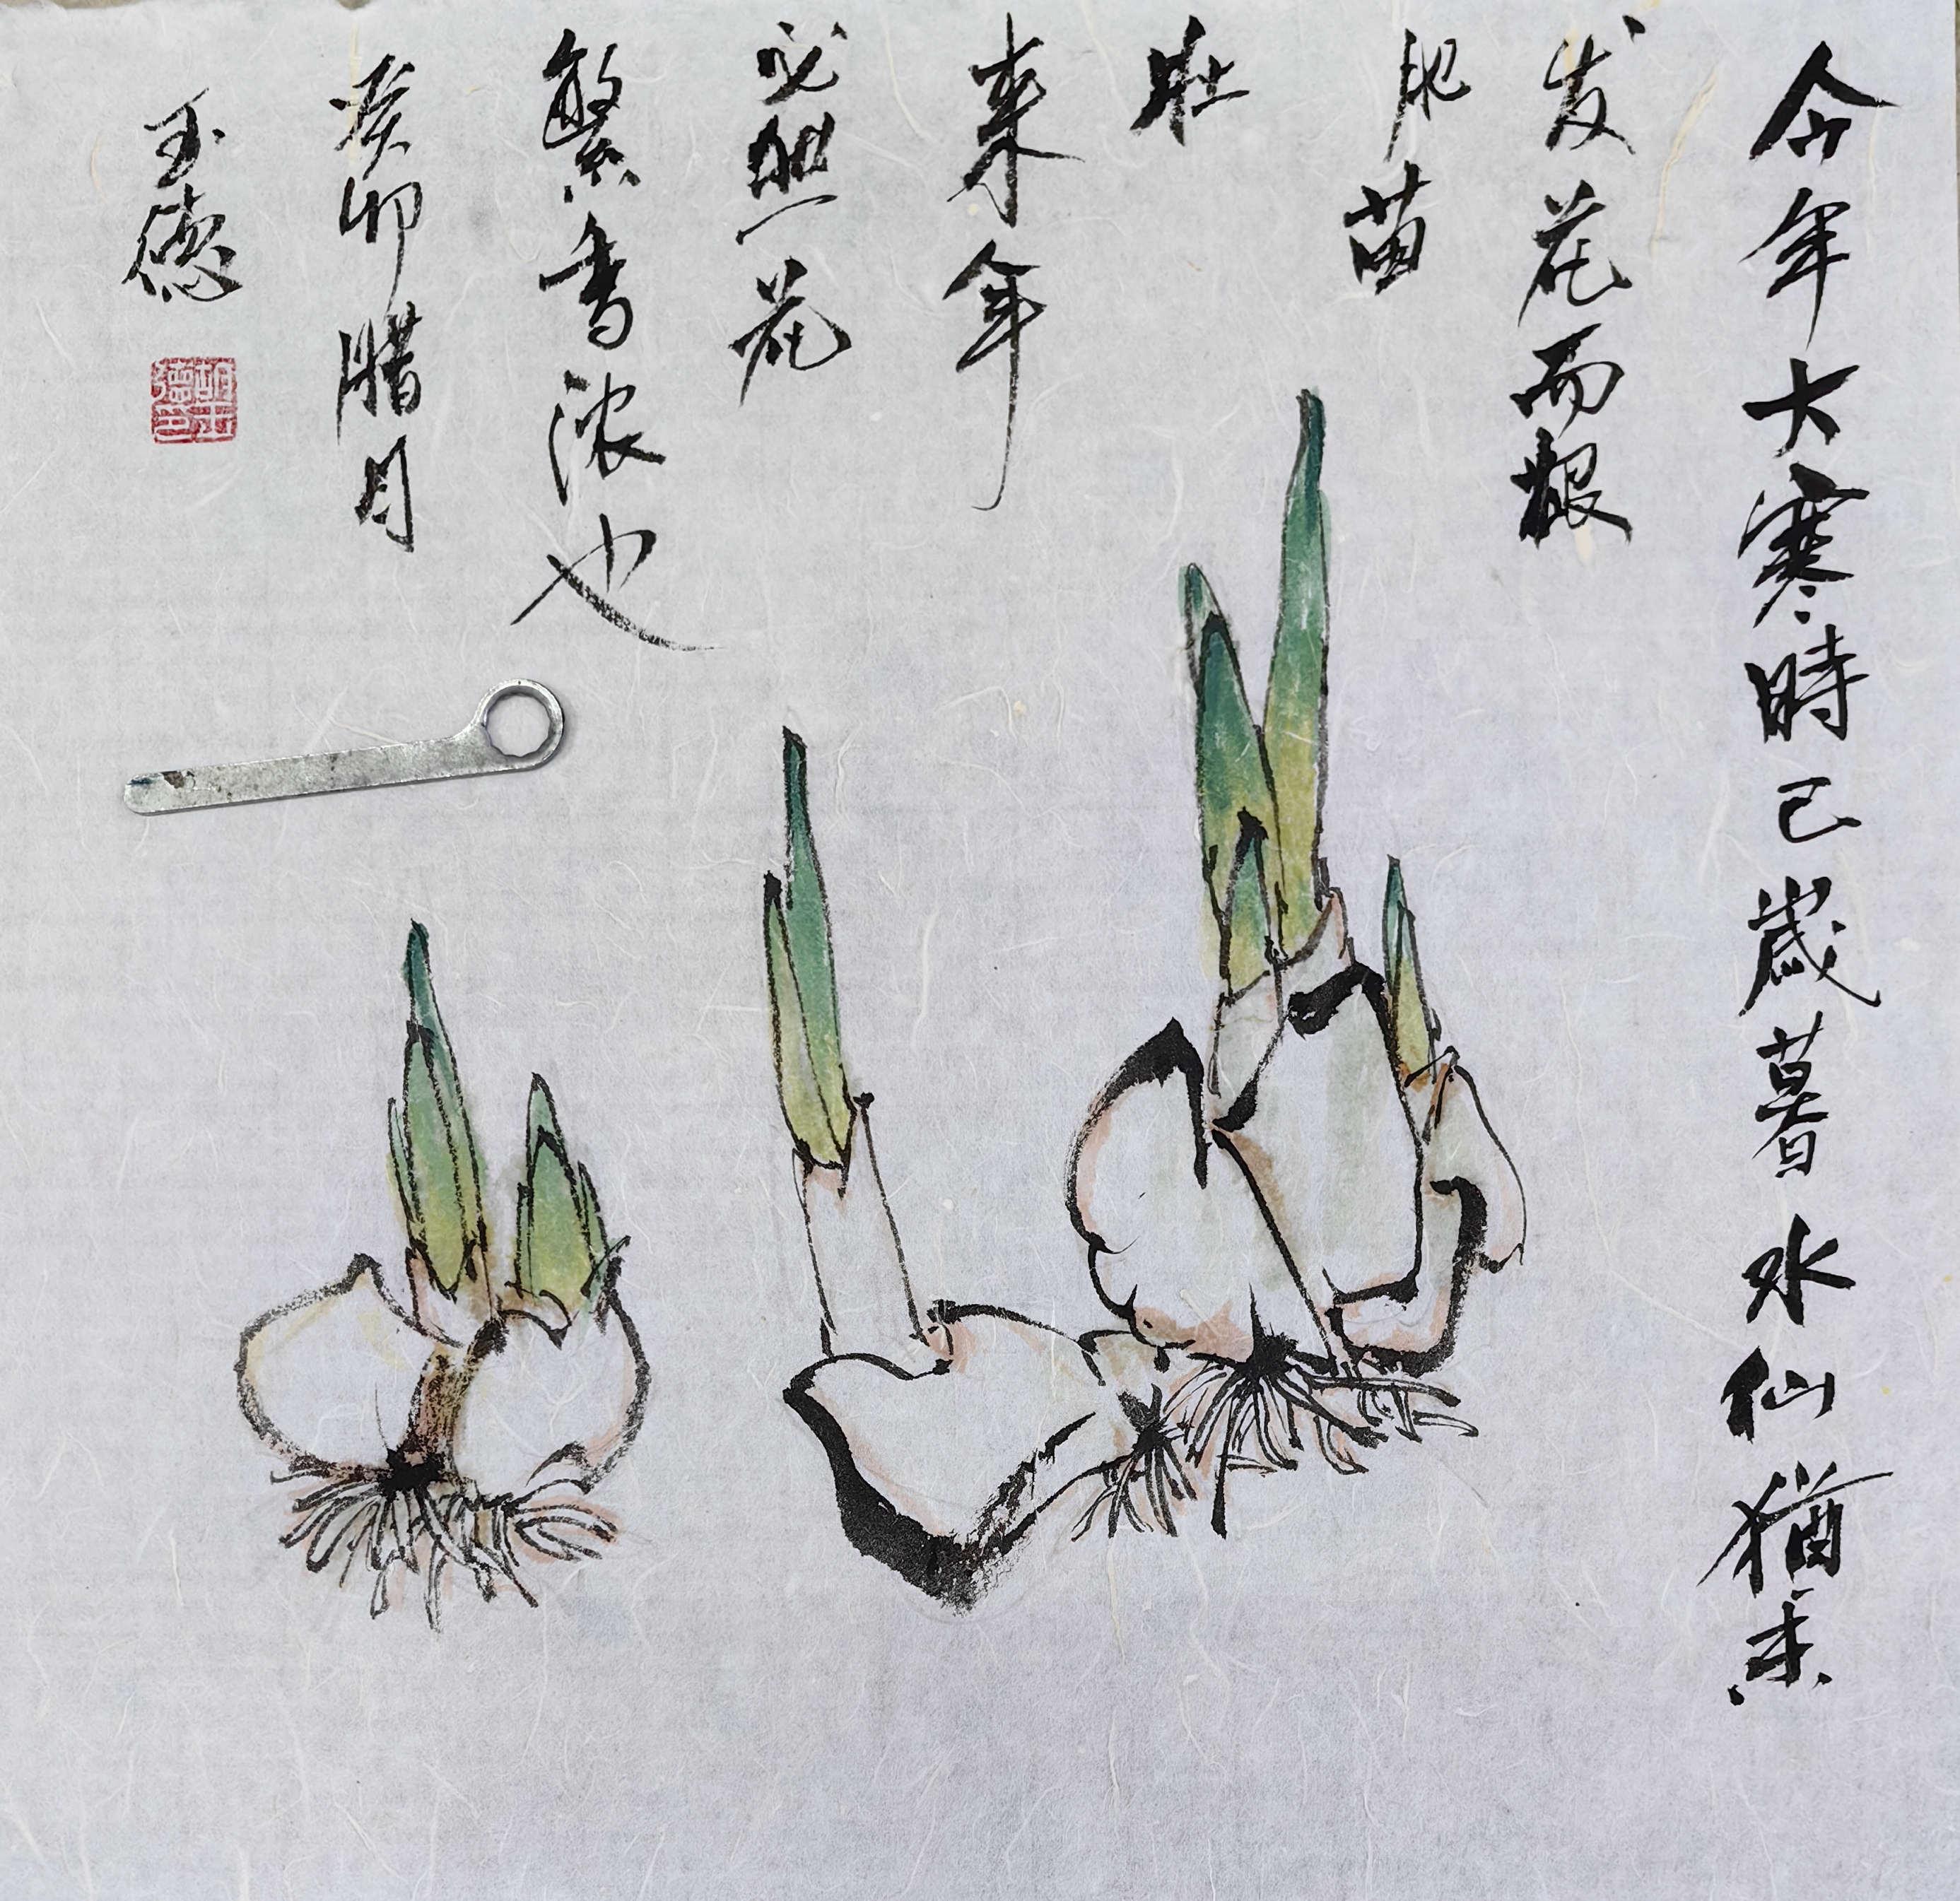 今年大寒時已歲暮水仙猶未
发花而根
肥苗
壯
来年
必然花
繁香浓也
癸卯腊月
玉德
胡玉德印